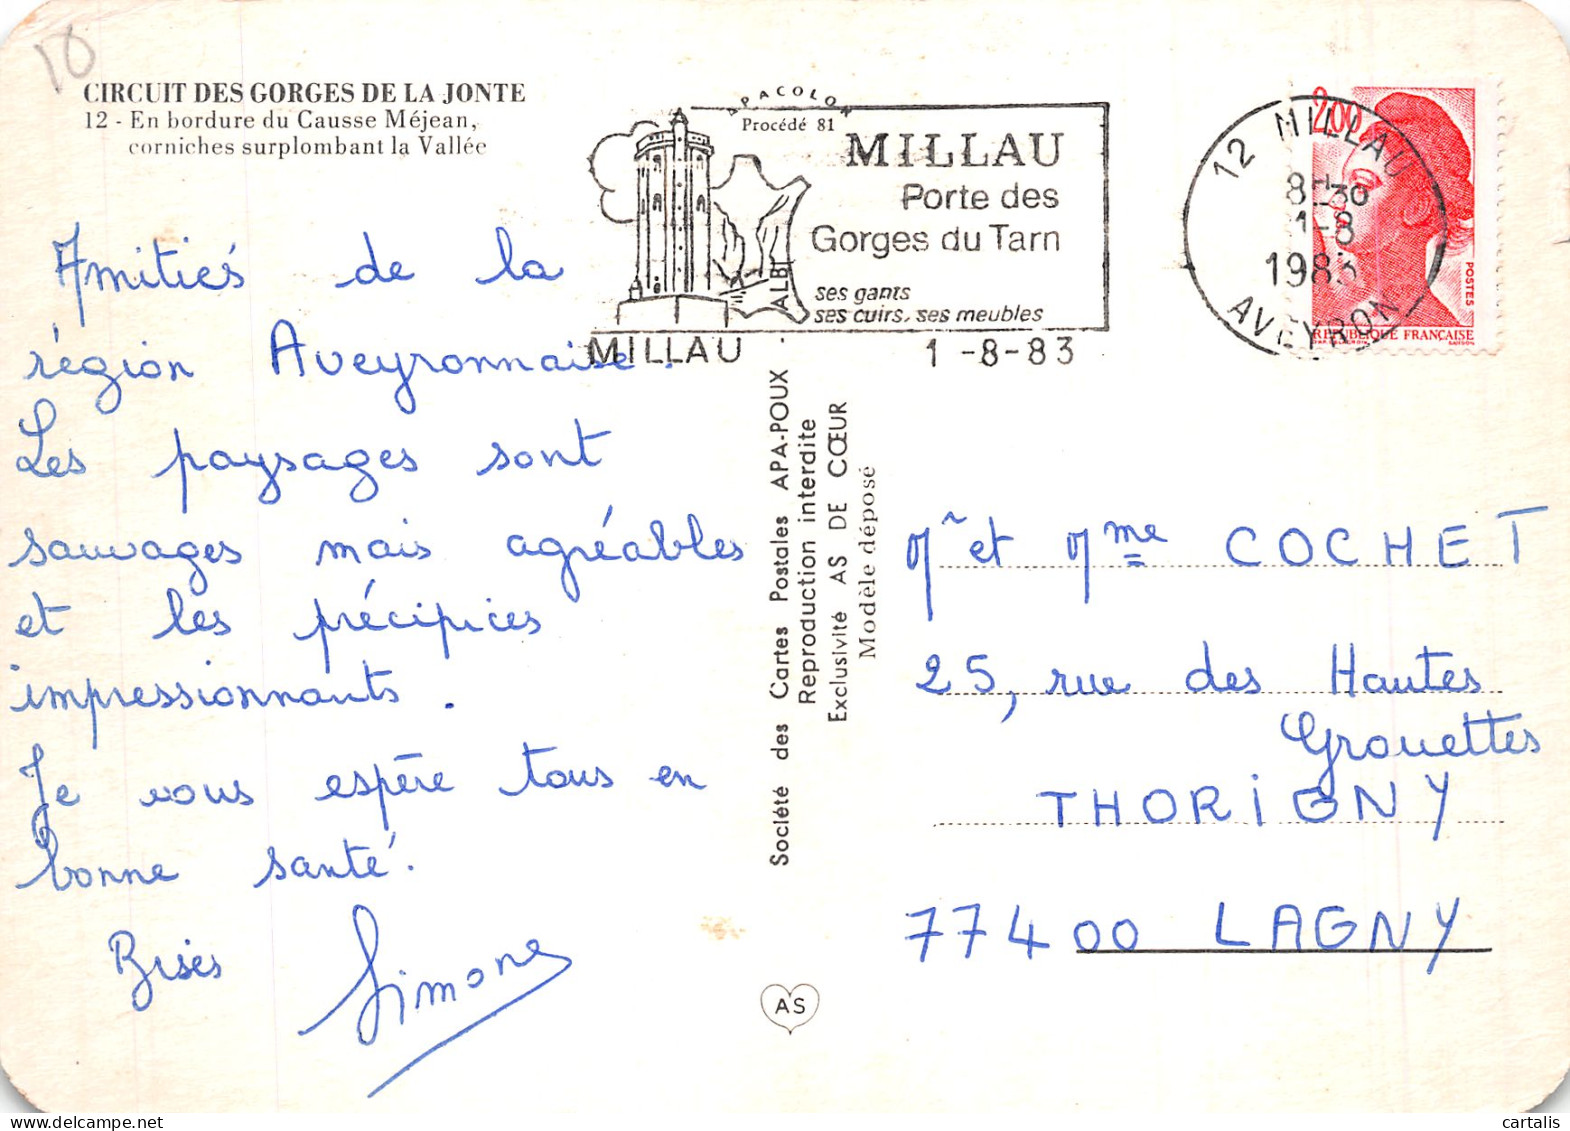 18
CIRCUIT DES GORGES DE LA JONTE
12 - En bordure du Causse Méjean,
corniches surplombant la Vallée
APACOLOR
Procédé 81
MILLAU
Porte des
Gorges du Tarn
ses gants
ses cuirs, ses meubles
ALBI
MILLAU
1 -8-83
12 MILLAU
8H30
1-8
1983
AVEYRON
2,00
POSTES
REPUBLIQUE FRANÇAISE
Amitiés de la
région Aveyronnaise.
Les paysages sont
sauvages mais agréables
et les précipices
impressionnants.
Je vous espère tous en
bonne santé.
Bises
Simone
Société des Cartes Postales APA-POUX
Reproduction interdite
Exclusivité AS DE CŒUR
Modèle déposé
AS
Mr et Mme COCHET
25, rue des Hautes
Grouettes
THORIGNY
77400 LAGNY
cartalis